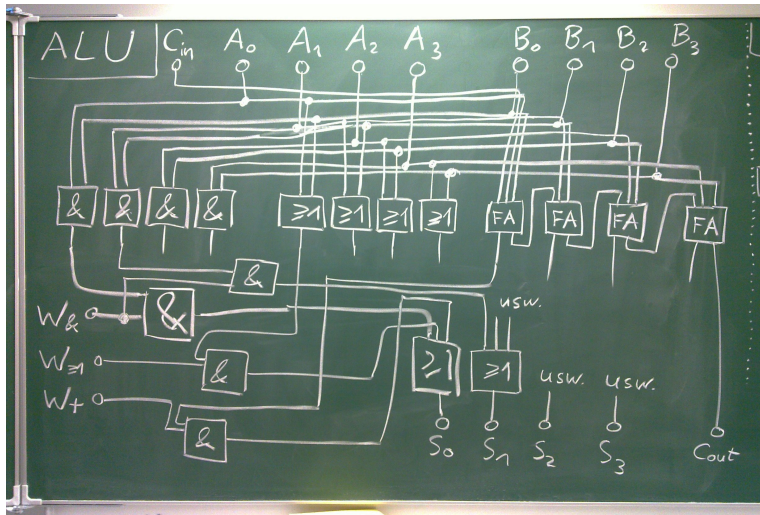 ALU Cin A₀ A₁ A₂ A₃ B₀ B₁ B₂ B₃
& & & & ≥1 ≥1 ≥1 ≥1 FA FA FA FA
&
usw.
W& &
W≥1 & ≥1 ≥1 usw. usw.
W+ &
S₀ S₁ S₂ S₃ Cout